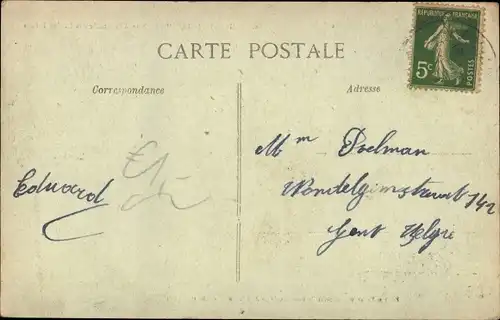 CARTE POSTALE
RÉPUBLIQUE FRANÇAISE
5c POSTES
Correspondance
Adresse
Mm Poelman
Eduard
Wondelgemstraat 142
Gent Belgie